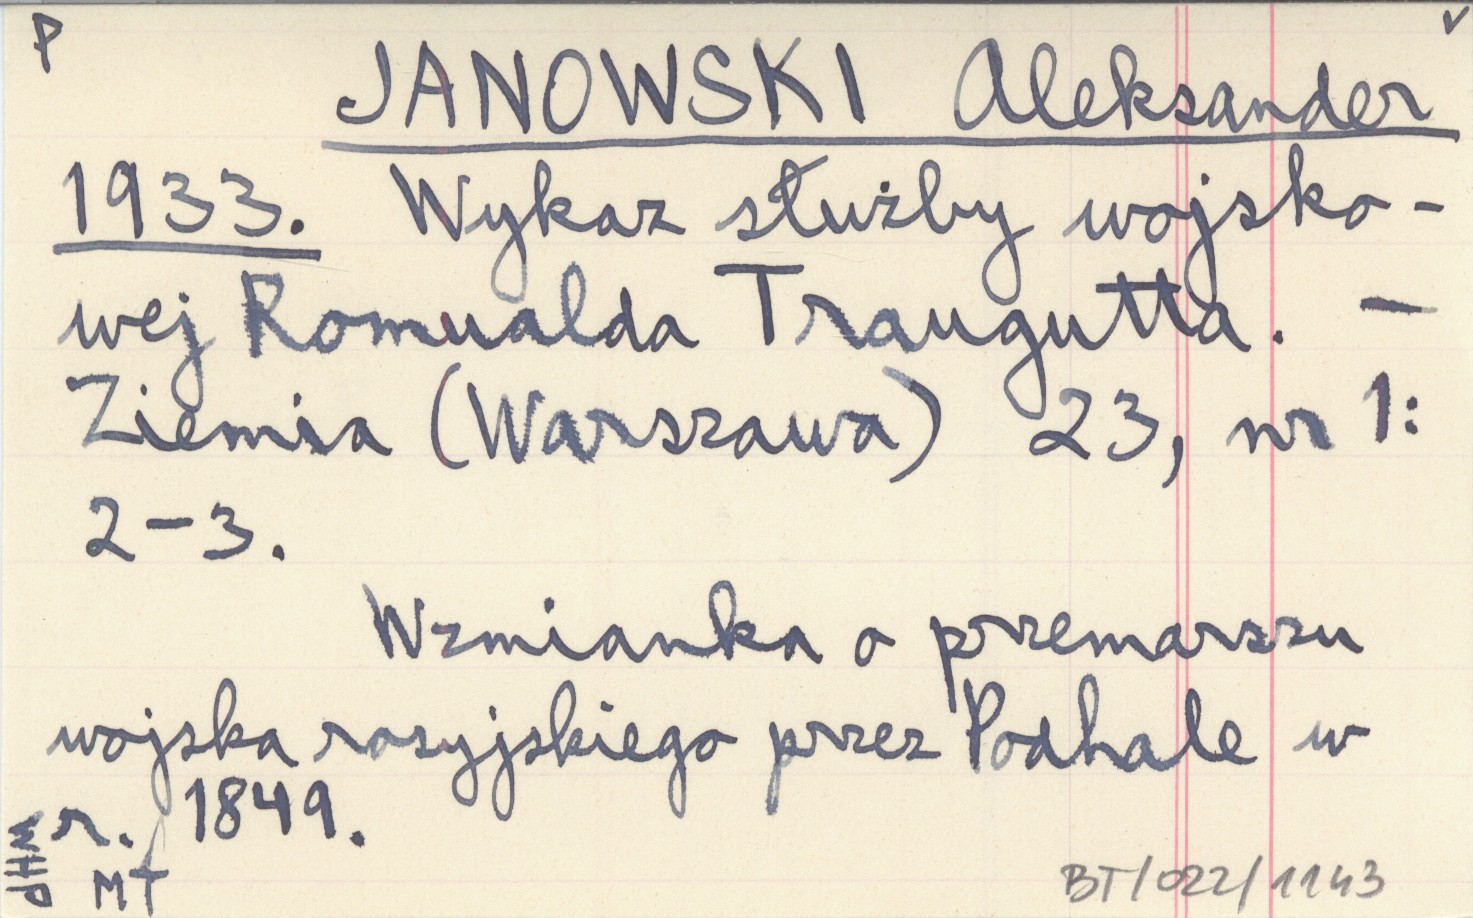 P
v
JANOWSKI Aleksander
1933. Wykaz służby wojsko-
wej Romualda Traugutta. —
Ziemia (Warszawa) 23, nr 1:
2-3.
Wzmianka o przemarszu
wojska rosyjskiego przez Podhale w
r. 1849.
MT
BT/022/1143